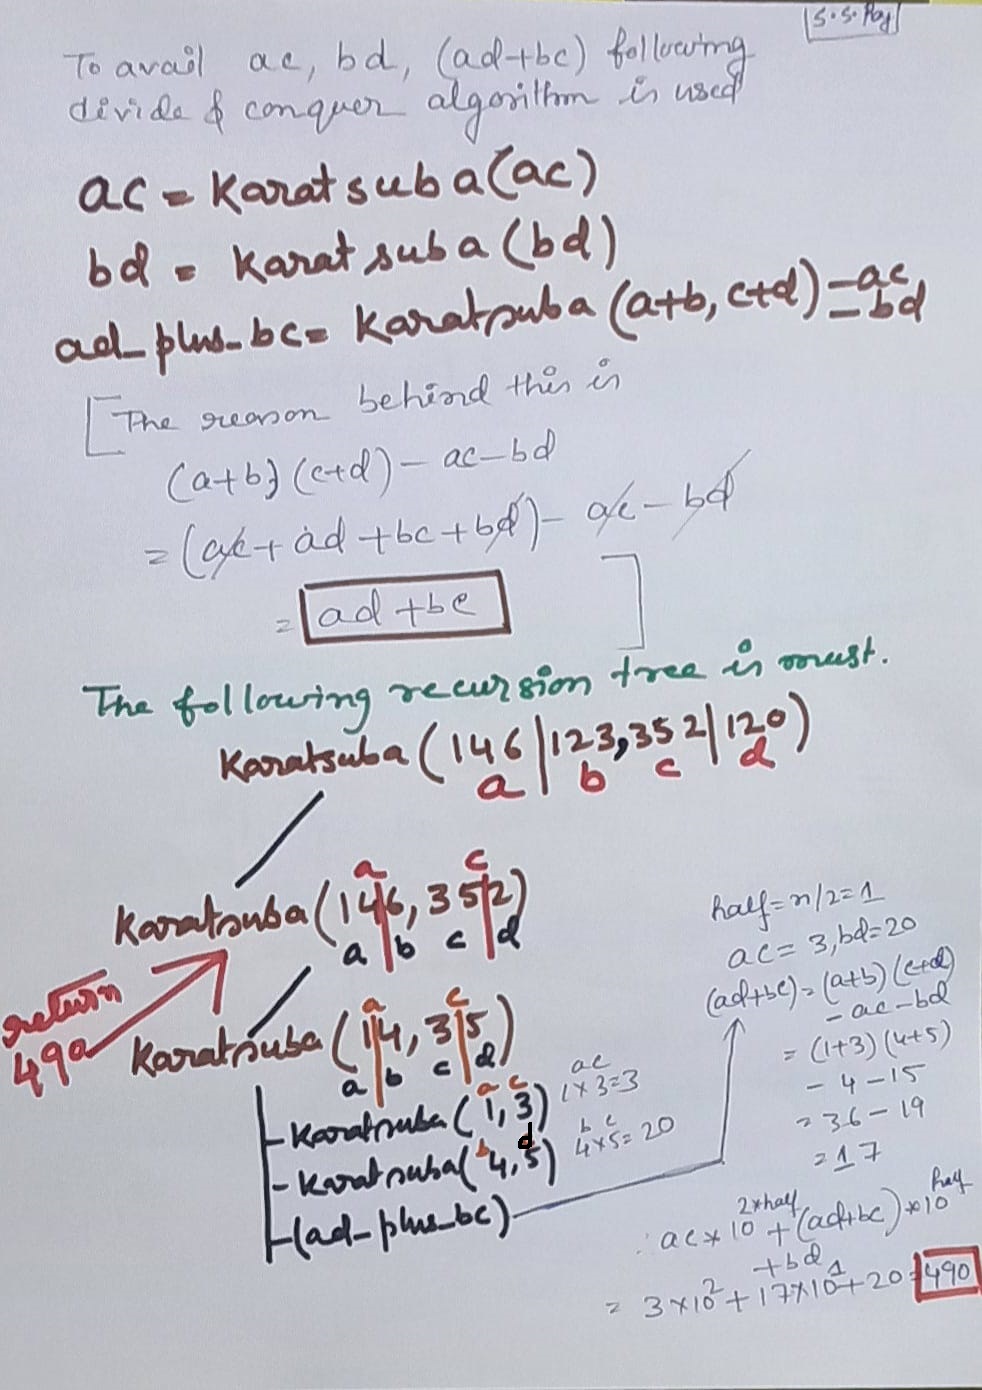 S.S. Roy
To avail ac, bd, (ad+bc) following
divide & conquer algorithm is used
ac = Karatsuba(ac)
bd = Karatsuba(bd)
ad_plus_bc = Karatsuba(a+b, c+d) - ac
- bd
[The reason behind this is
(a+b)(c+d) - ac - bd
= (ac + ad + bc + bd) - ac - bd
= ad + bc ]
The following recursion tree is must.
Karatsuba(146|123,352|120)
a b c d
a c
Karatsuba(14|6, 35|2)
a b c d
return
490
a c
Karatsuba(1|4, 3|5)
a b c d
a c
Karatsuba(1, 3)
ac
1×3=3
b d
Karatsuba(4,5)
b c
4×5=20
(ad_plus_bc)
half=n/2=1
ac=3, bd=20
(ad+bc)=(a+b)(c+d)
- ac - bd
= (1+3)(4+5)
- 4 - 15
= 36 - 19
= 17
∴ ac*10^2*half + (ad+bc)*10^half
+bd
= 3×10^2 + 17×10^1 + 20 = 490